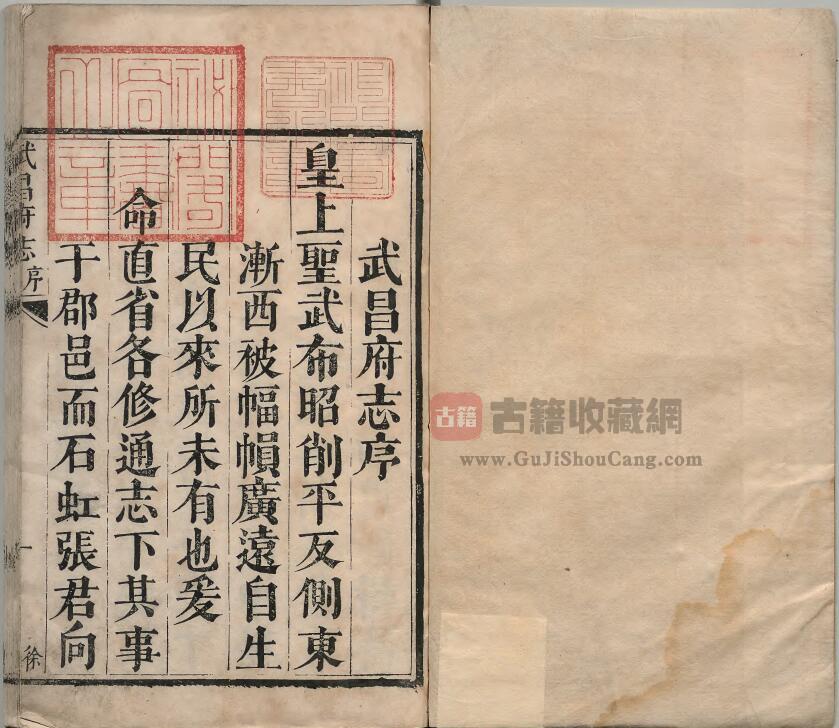 武昌府志序
皇上聖武布昭削平反側東
漸西被幅幀廣遠自生
民以來所未有也爰
命直省各修通志下其事
于郡邑而石虹張君向
武昌府志
序
一
徐
古籍
古籍收藏網
www.GuJiShouCang.com